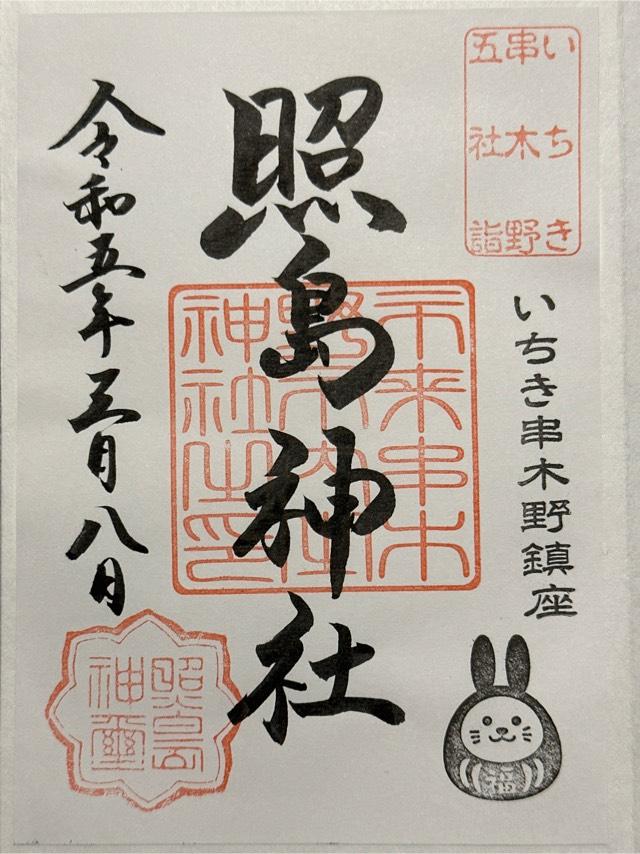 いちき
串木野
五社詣
いちき串木野鎮座
照島神社
市来串木
野
神社之印
令和五年三月八日
照島
神璽
福